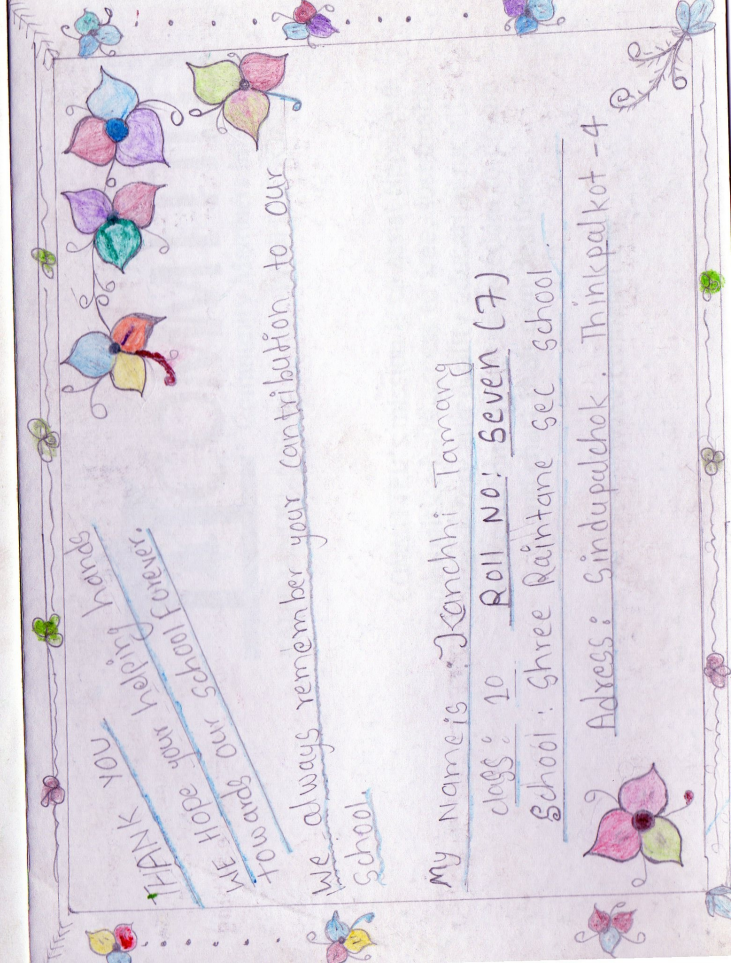 THANK YOU
WE Hope your helping hands
towards our School Forever.
We always remember your contribution to our
School
My Name is : Kanchhi Tamang
class : 10 Roll No: Seven (7)
School : Shree Raithtane sec school.
Adress : Sindupalchok . Thinkpalkot - 4